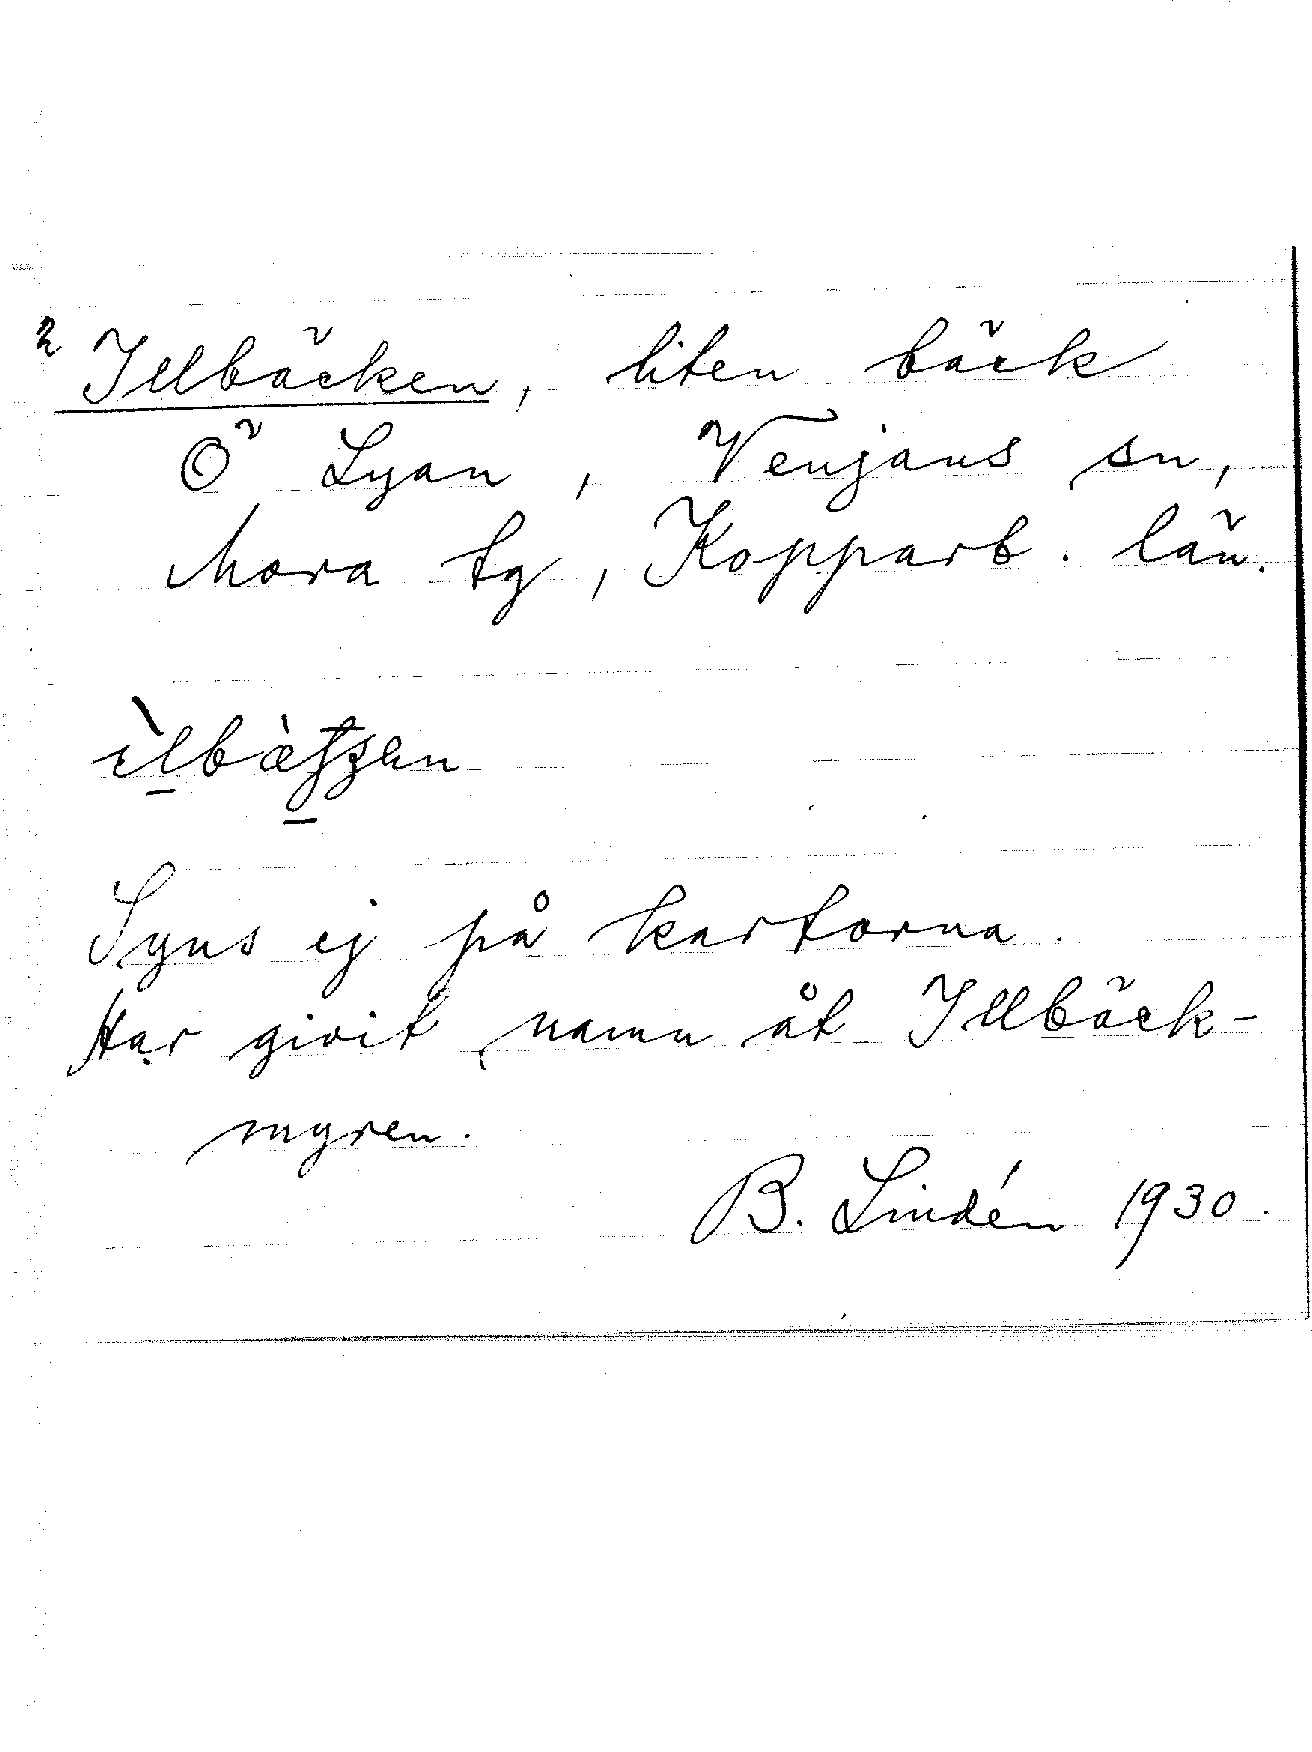 2 Illbäcken, liten bäck
Ö Lyan, Venjans sn,
Mora tg, Kopparb. län.
Syns ej på kartorna.
Har givit namn åt Illbäck-
myren.
B. Lindén 1930.